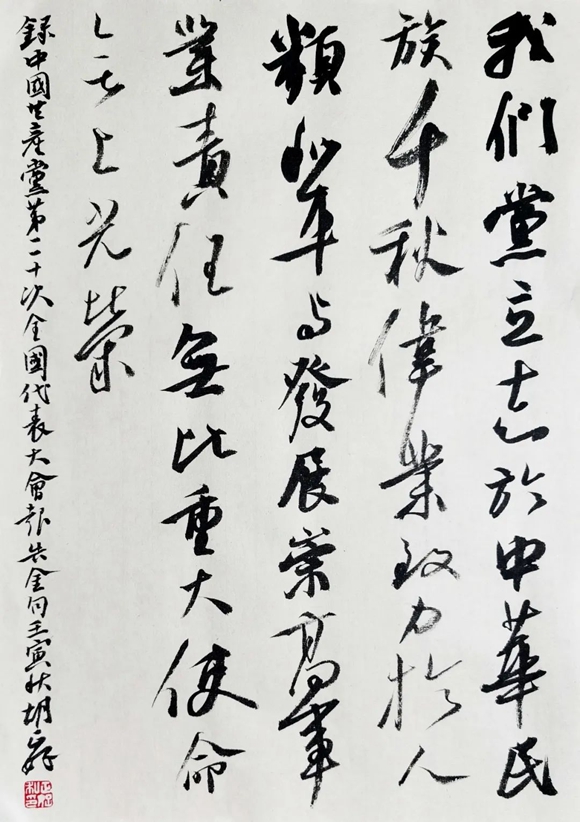 我們黨立志於中華民
族千秋偉業致力於人
類和平与發展崇高事
業責任無比重大使命
无上光榮
録中國共產黨第二十次全國代表大會報告金句壬寅秋胡